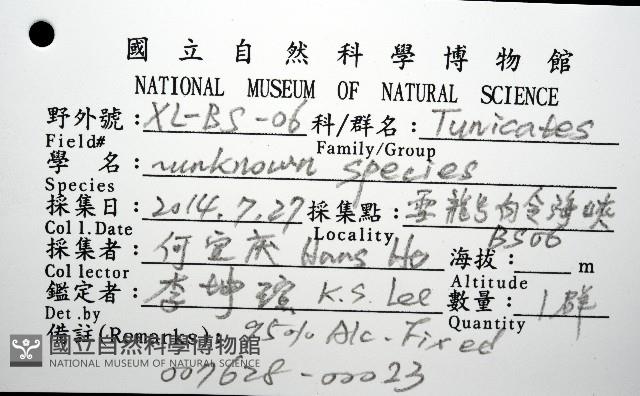 國立自然科學博物館
NATIONAL MUSEUM OF NATURAL SCIENCE
野外號：XL-BS-06 科/群名：Tunicates
Field# Family/Group
學 名：unknown species
Species
採集日：2014.7.27 採集點：
Coll.Date Locality BS06
採集者：何宣 Hans Ho 海拔：m
Collector Altitude
鑑定者：李坤瑄 K.S. Lee 數量：1群
Det.by Quantity
備註(Remarks)：95% Alc. Fixed
國立自然科學博物館
NATIONAL MUSEUM OF NATURAL SCIENCE
007628-00023